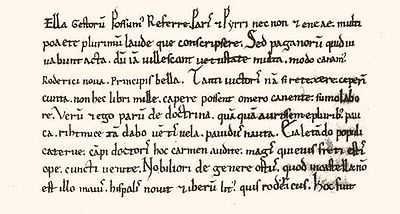 Ella gestorū possumꝰ referre. Paris & Pyrri nec non & eneae. multi
poaete plurimū laude que conscripsere. Sed paganorū quid iu
vabunt acta, dū iā villescant vetustate multa. modo canamꝰ
Roderici noua. Principis bella. Tanti uictoris nā si retexere ceperī
cunta. non hec libri mille. capere possent omero canente. sumo labo
re. Verū & ego parū de doctrina. quā quā aurissem e pluribꝰ pau
ca. rihtmice tn̄ dabo uētis uela. pauidus nauta. Eia letādo populi
caterue. cāpi doctoris hoc carmen audite. magis qui eius freti estis
ope. cuncti uenite. Nobiliori de genere ortus. quod in castella nō
est illo maius. hispalis nouit & iberū litꝰ. quis rodericus. Hoc fuit